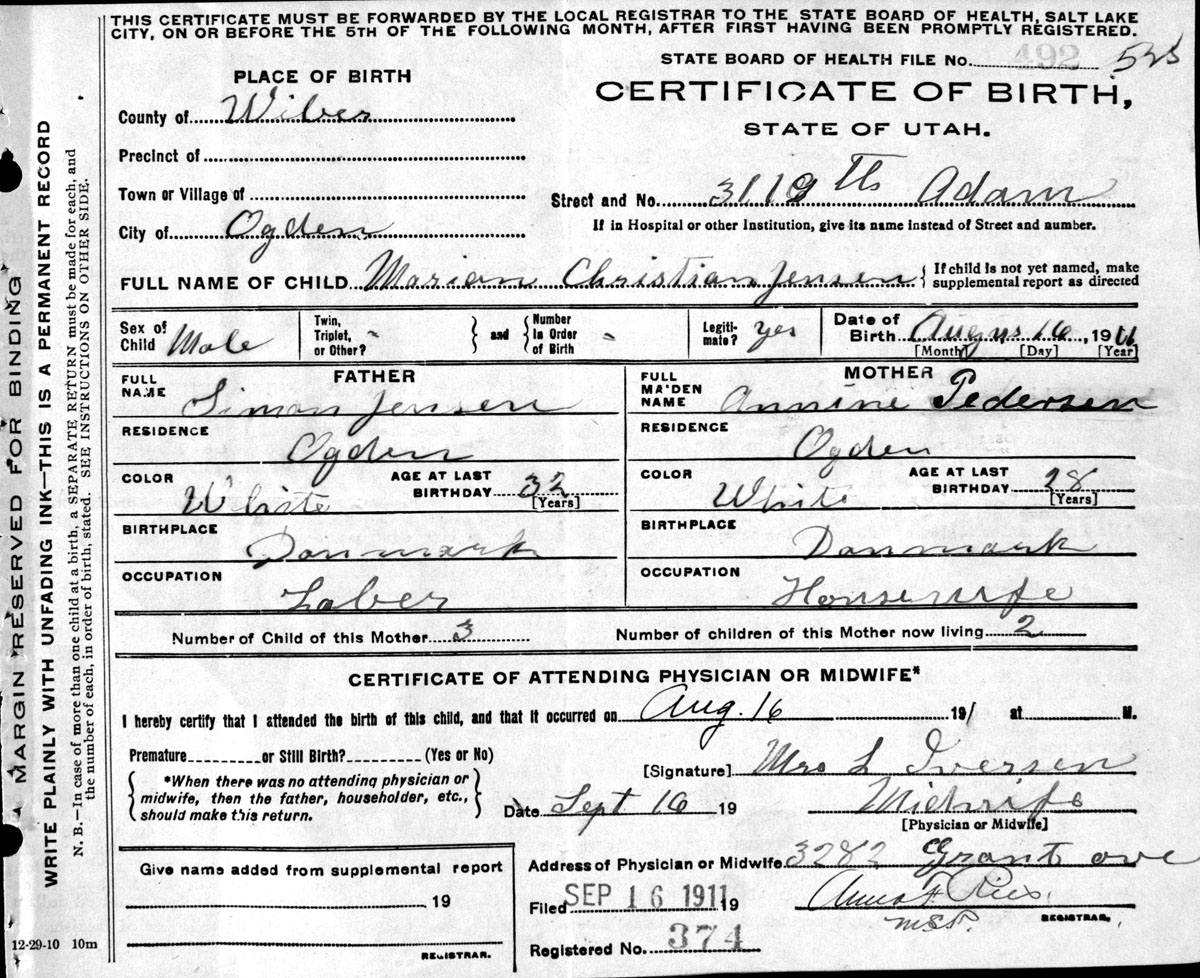 THIS CERTIFICATE MUST BE FORWARDED BY THE LOCAL REGISTRAR TO THE STATE BOARD OF HEALTH, SALT LAKE
CITY, ON OR BEFORE THE 5TH OF THE FOLLOWING MONTH, AFTER FIRST HAVING BEEN PROMPTLY REGISTERED.
STATE BOARD OF HEALTH FILE No. 492
PLACE OF BIRTH
CERTIFICATE OF BIRTH,
STATE OF UTAH.
County of Wiber
Precinct of
Town or Village of
Street and No. 3119 th Adam
City of Ogden
If in Hospital or other Institution, give its name instead of Street and number.
FULL NAME OF CHILD Marion Christian Jensen { If child is not yet named, make
supplemental report as directed
Sex of Child Male
Twin, Triplet, or Other? } and { Number in Order of Birth
Legiti- mate? yes
Date of Birth Augus 16, 1911
[Month] [Day] [Year]
FATHER
MOTHER
FULL NAME Simon Jensen
FULL MAIDEN NAME Annine Pedersen
RESIDENCE Ogden
RESIDENCE Ogden
COLOR White AGE AT LAST BIRTHDAY 32 [Years]
COLOR White AGE AT LAST BIRTHDAY 28 [Years]
BIRTHPLACE Danmark
BIRTHPLACE Danmark
OCCUPATION Laber
OCCUPATION Housewife
Number of Child of this Mother 3 Number of children of this Mother now living 2
CERTIFICATE OF ATTENDING PHYSICIAN OR MIDWIFE*
I hereby certify that I attended the birth of this child, and that it occurred on Aug. 16 191 at M.
Premature or Still Birth? (Yes or No)
[Signature] Mrs L Iversen
{ *When there was no attending physician or
midwife, then the father, householder, etc.,
should make this return. }
Date Sept 16 19 Midwife
[Physician or Midwife]
Address of Physician or Midwife 3282 Grant ave
Give name added from supplemental report
19
REGISTRAR.
Filed SEP 16 1911 19
REGISTRAR.
Registered No. 374
12-29-10 10m
MARGIN RESERVED FOR BINDING
WRITE PLAINLY WITH UNFADING INK—THIS IS A PERMANENT RECORD
N. B.—In case of more than one child at a birth, a SEPARATE RETURN must be made for each, and
the number of each, in order of birth, stated. SEE INSTRUCTIONS ON OTHER SIDE.